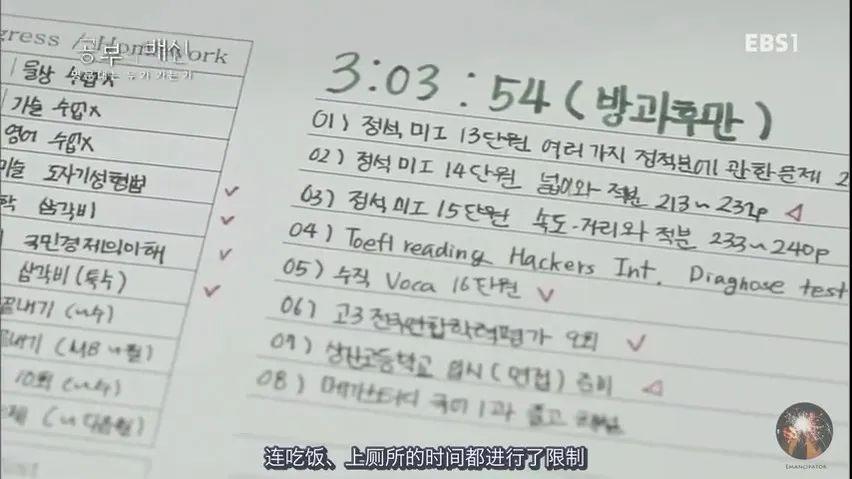 공부의 배신
명문대는 누가 가는가
EBS1
gress / Homework
물상 수업x
가술 수업x
영어 수업x
미술 도자기성형법
학 삼각비
국민경제의이해
삼각비(특수)
끝내기 (u수)
10회 (u수)
3:03:54 (방과후만)
01) 정석 미I 13단원 여러가지 정적분에 관한문제 2
02) 정석 미I 14단원 넓이와 적분 213~232p
03) 정석 미I 15단원 속도·거리와 적분 233~240p
04) Toefl reading Hackers Int. Diagnose test
05) 수직 Voca 16단원
06) 고3 전국연합학력평가 2회
07) 상산고등학교 입시 (면접) 준비
08) 메가스터디 국어 1과 풀고
连吃饭、上厕所的时间都进行了限制
EMANCIPATOR